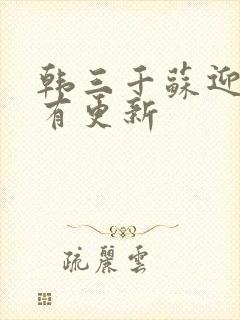 韩三千蘇迎
有更新
疏麗雲